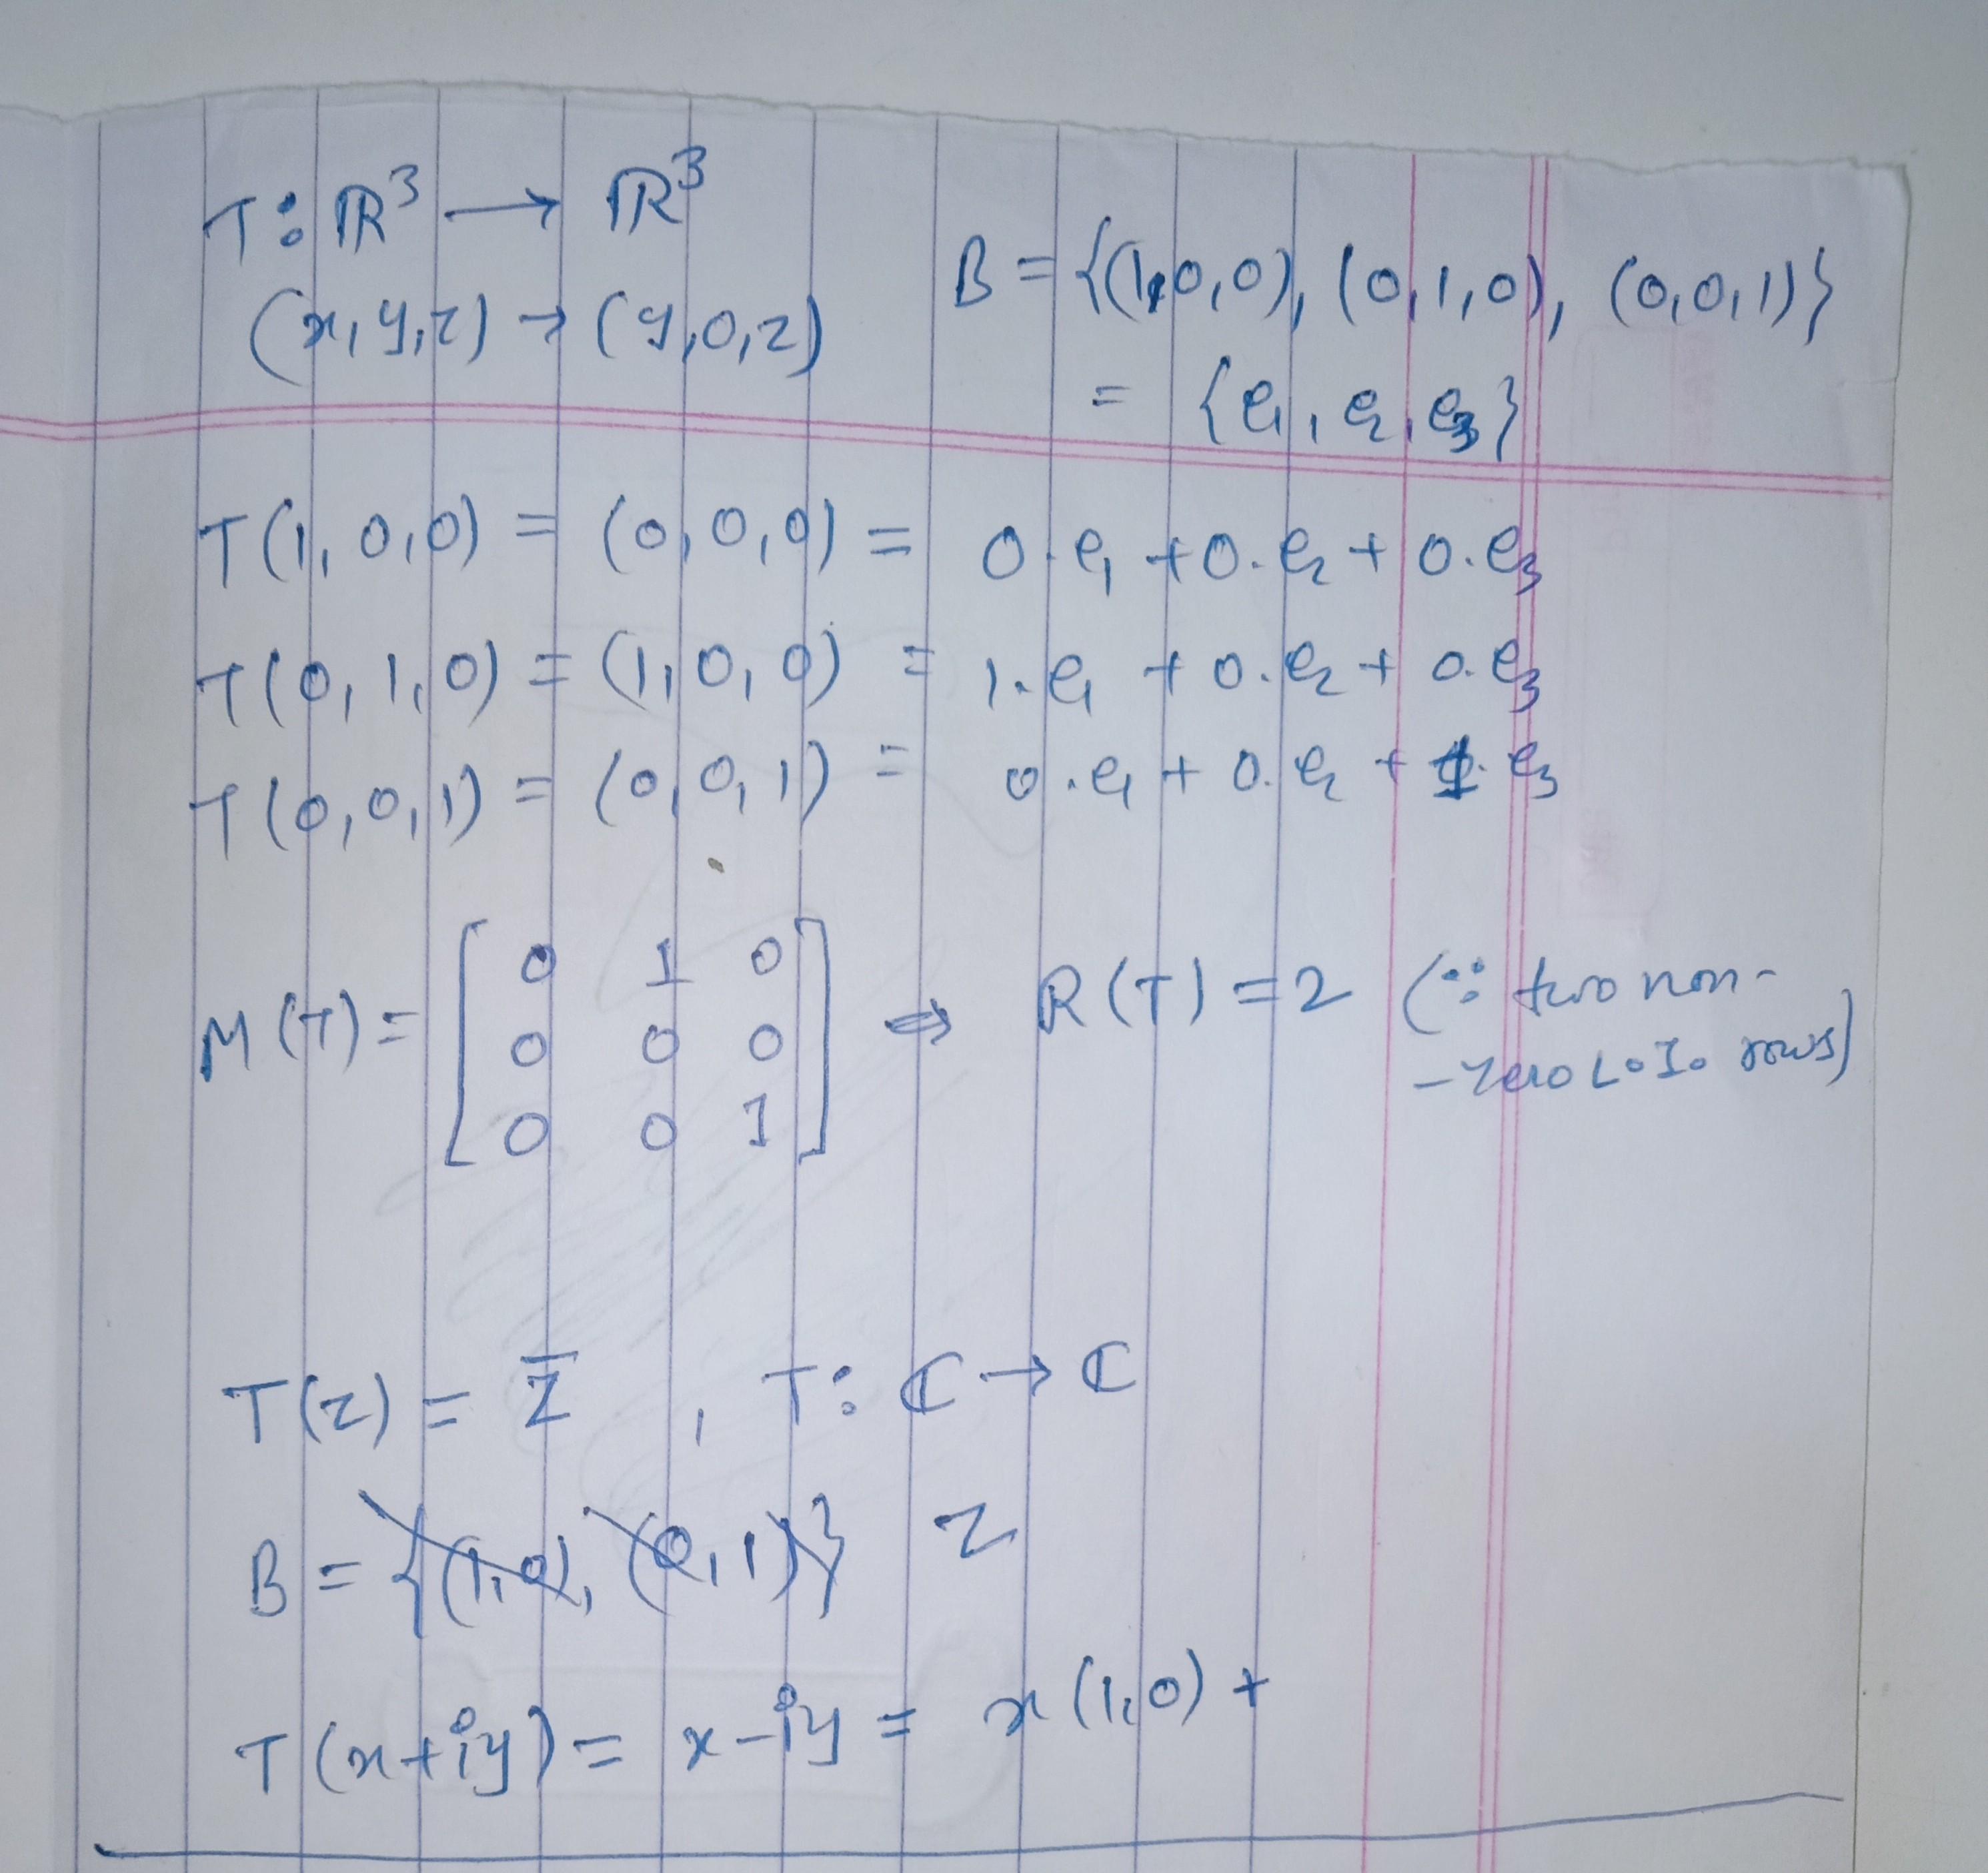 T: ℝ³ → ℝ³
(x, y, z) → (y, 0, z)
B = {(1, 0, 0), (0, 1, 0), (0, 0, 1)}
= {e₁, e₂, e₃}
T(1, 0, 0) = (0, 0, 0) = 0·e₁ + 0·e₂ + 0·e₃
T(0, 1, 0) = (1, 0, 0) = 1·e₁ + 0·e₂ + 0·e₃
T(0, 0, 1) = (0, 0, 1) = 0·e₁ + 0·e₂ + 1·e₃
M(T) = [0 1 0
0 0 0
0 0 1] ⇒ R(T) = 2 (∵ two non-
-zero L.I. rows)
T(z) = z̅ , T: ℂ → ℂ
B = {(1, 0), (0, 1)} z
T(x+iy) = x-iy = x(1, 0) +